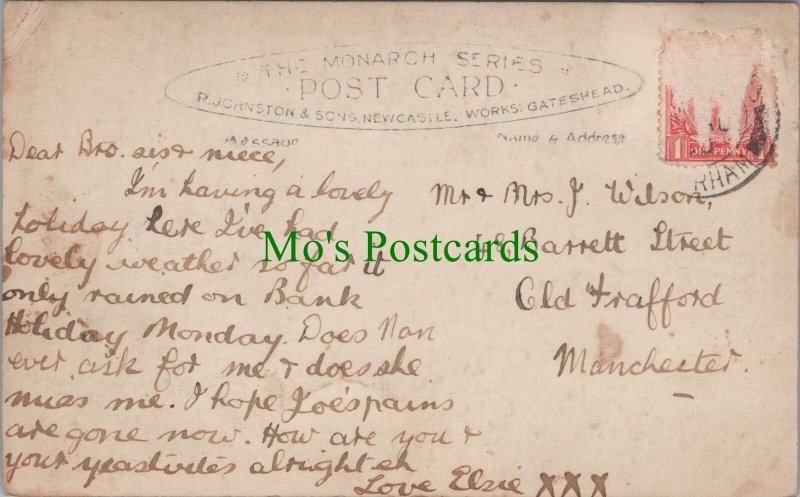 THE MONARCH SERIES
POST CARD
R. JOHNSTON & SONS, NEWCASTLE. WORKS: GATESHEAD.
Message
Name & Address
1 PENNY
RHAM
Dear Bro. sis & niece,
I'm having a lovely
holiday here I've had
lovely weather so far it
only rained on Bank
Holiday Monday. Does Nan
ever ask for me & does she
miss me. I hope Joe's pains
are gone now. How are you &
your alright eh
Love Elsie XXX
Mr & Mrs. J. Wilson,
Barrett Street
Old Trafford
Manchester.
Mo's Postcards